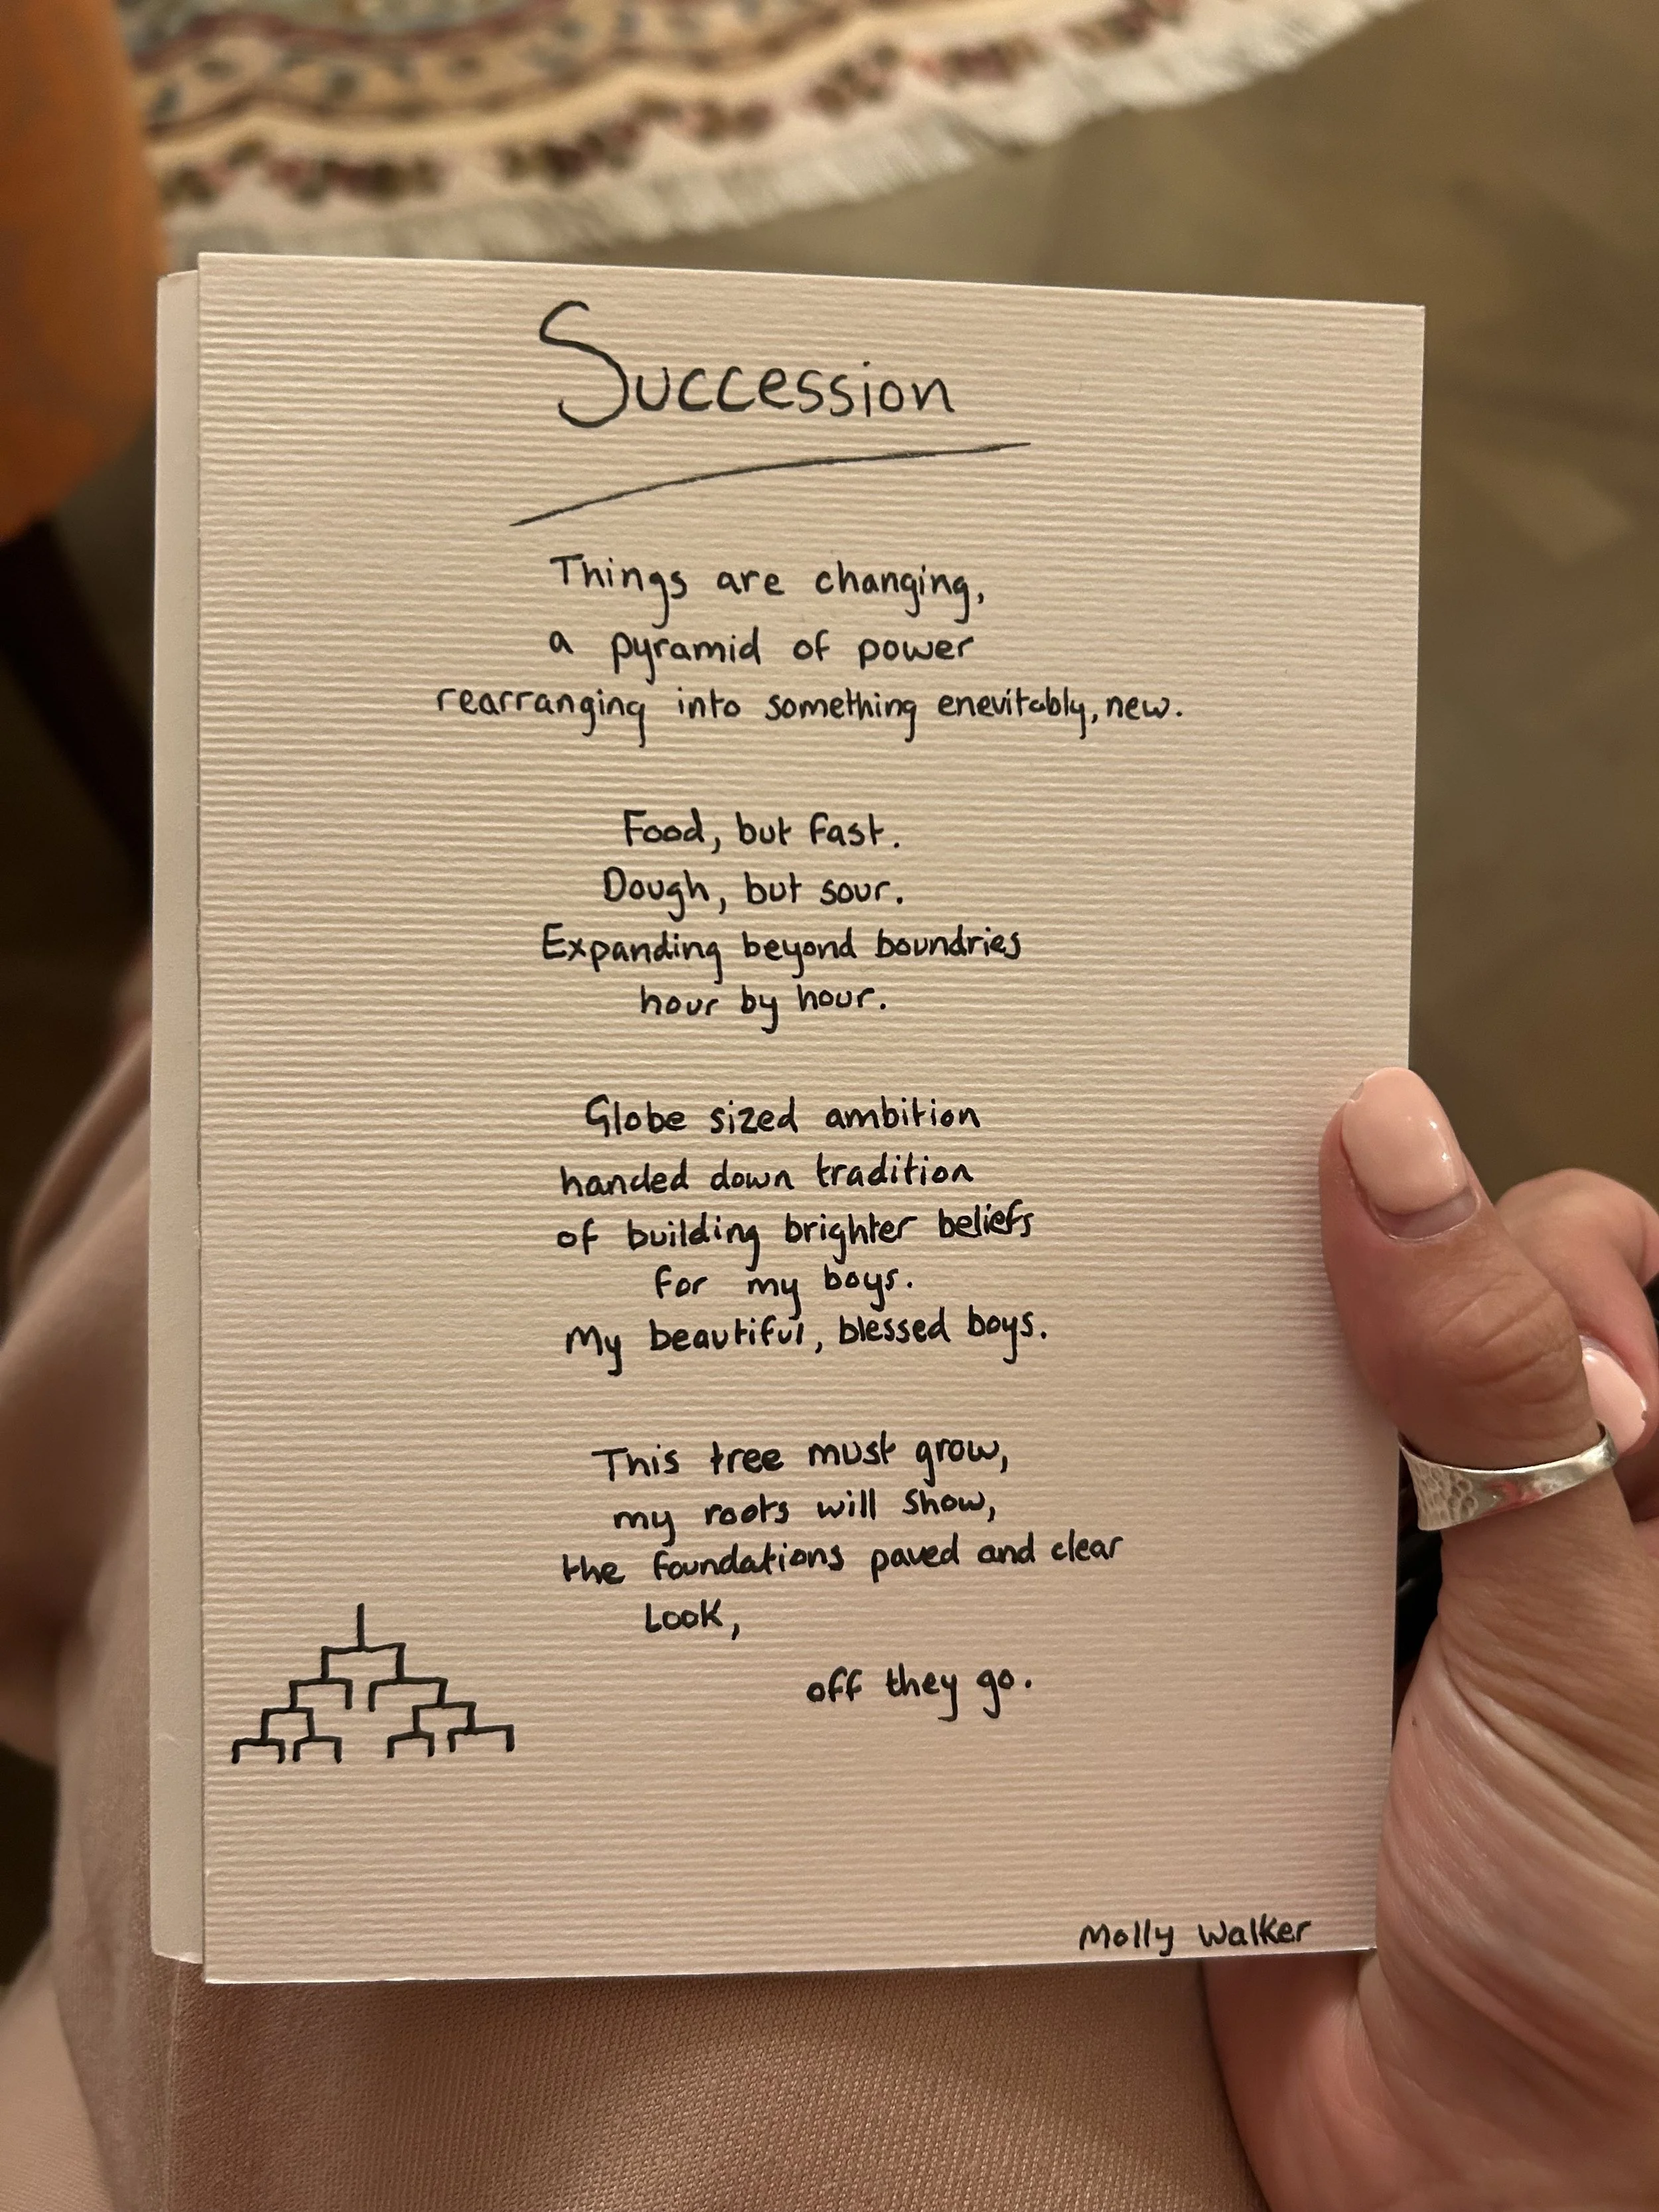 Succession
Things are changing,
a pyramid of power
rearranging into something enevitably, new.
Food, but fast.
Dough, but sour.
Expanding beyond boundries
hour by hour.
Globe sized ambition
handed down tradition
of building brighter beliefs
for my boys.
My beautiful, blessed boys.
This tree must grow,
my roots will show,
the foundations paved and clear
Look,
off they go.
Molly Walker